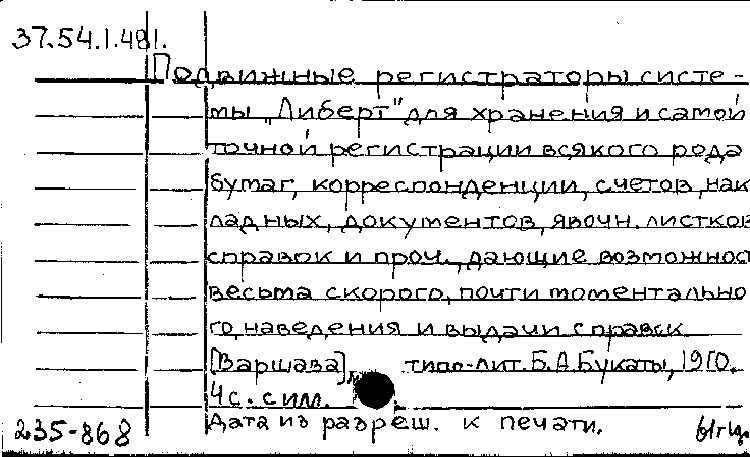 37.54.1.481.
Подвижные регистраторы систе-
мы „Либерт" для хранения и самой
точной регистрации всякого рода
бумаг, корреспонденции, счетов, нак
ладных, документов, явочн. листков
справок и проч., дающие возможност
весьма скорого, почти моментально
го, наведения и выдачи справок
[Варшава], типо-лит. Б.А.Букаты, 1910.
4с. с илл.
235-868 Дата из разреш. к печати.